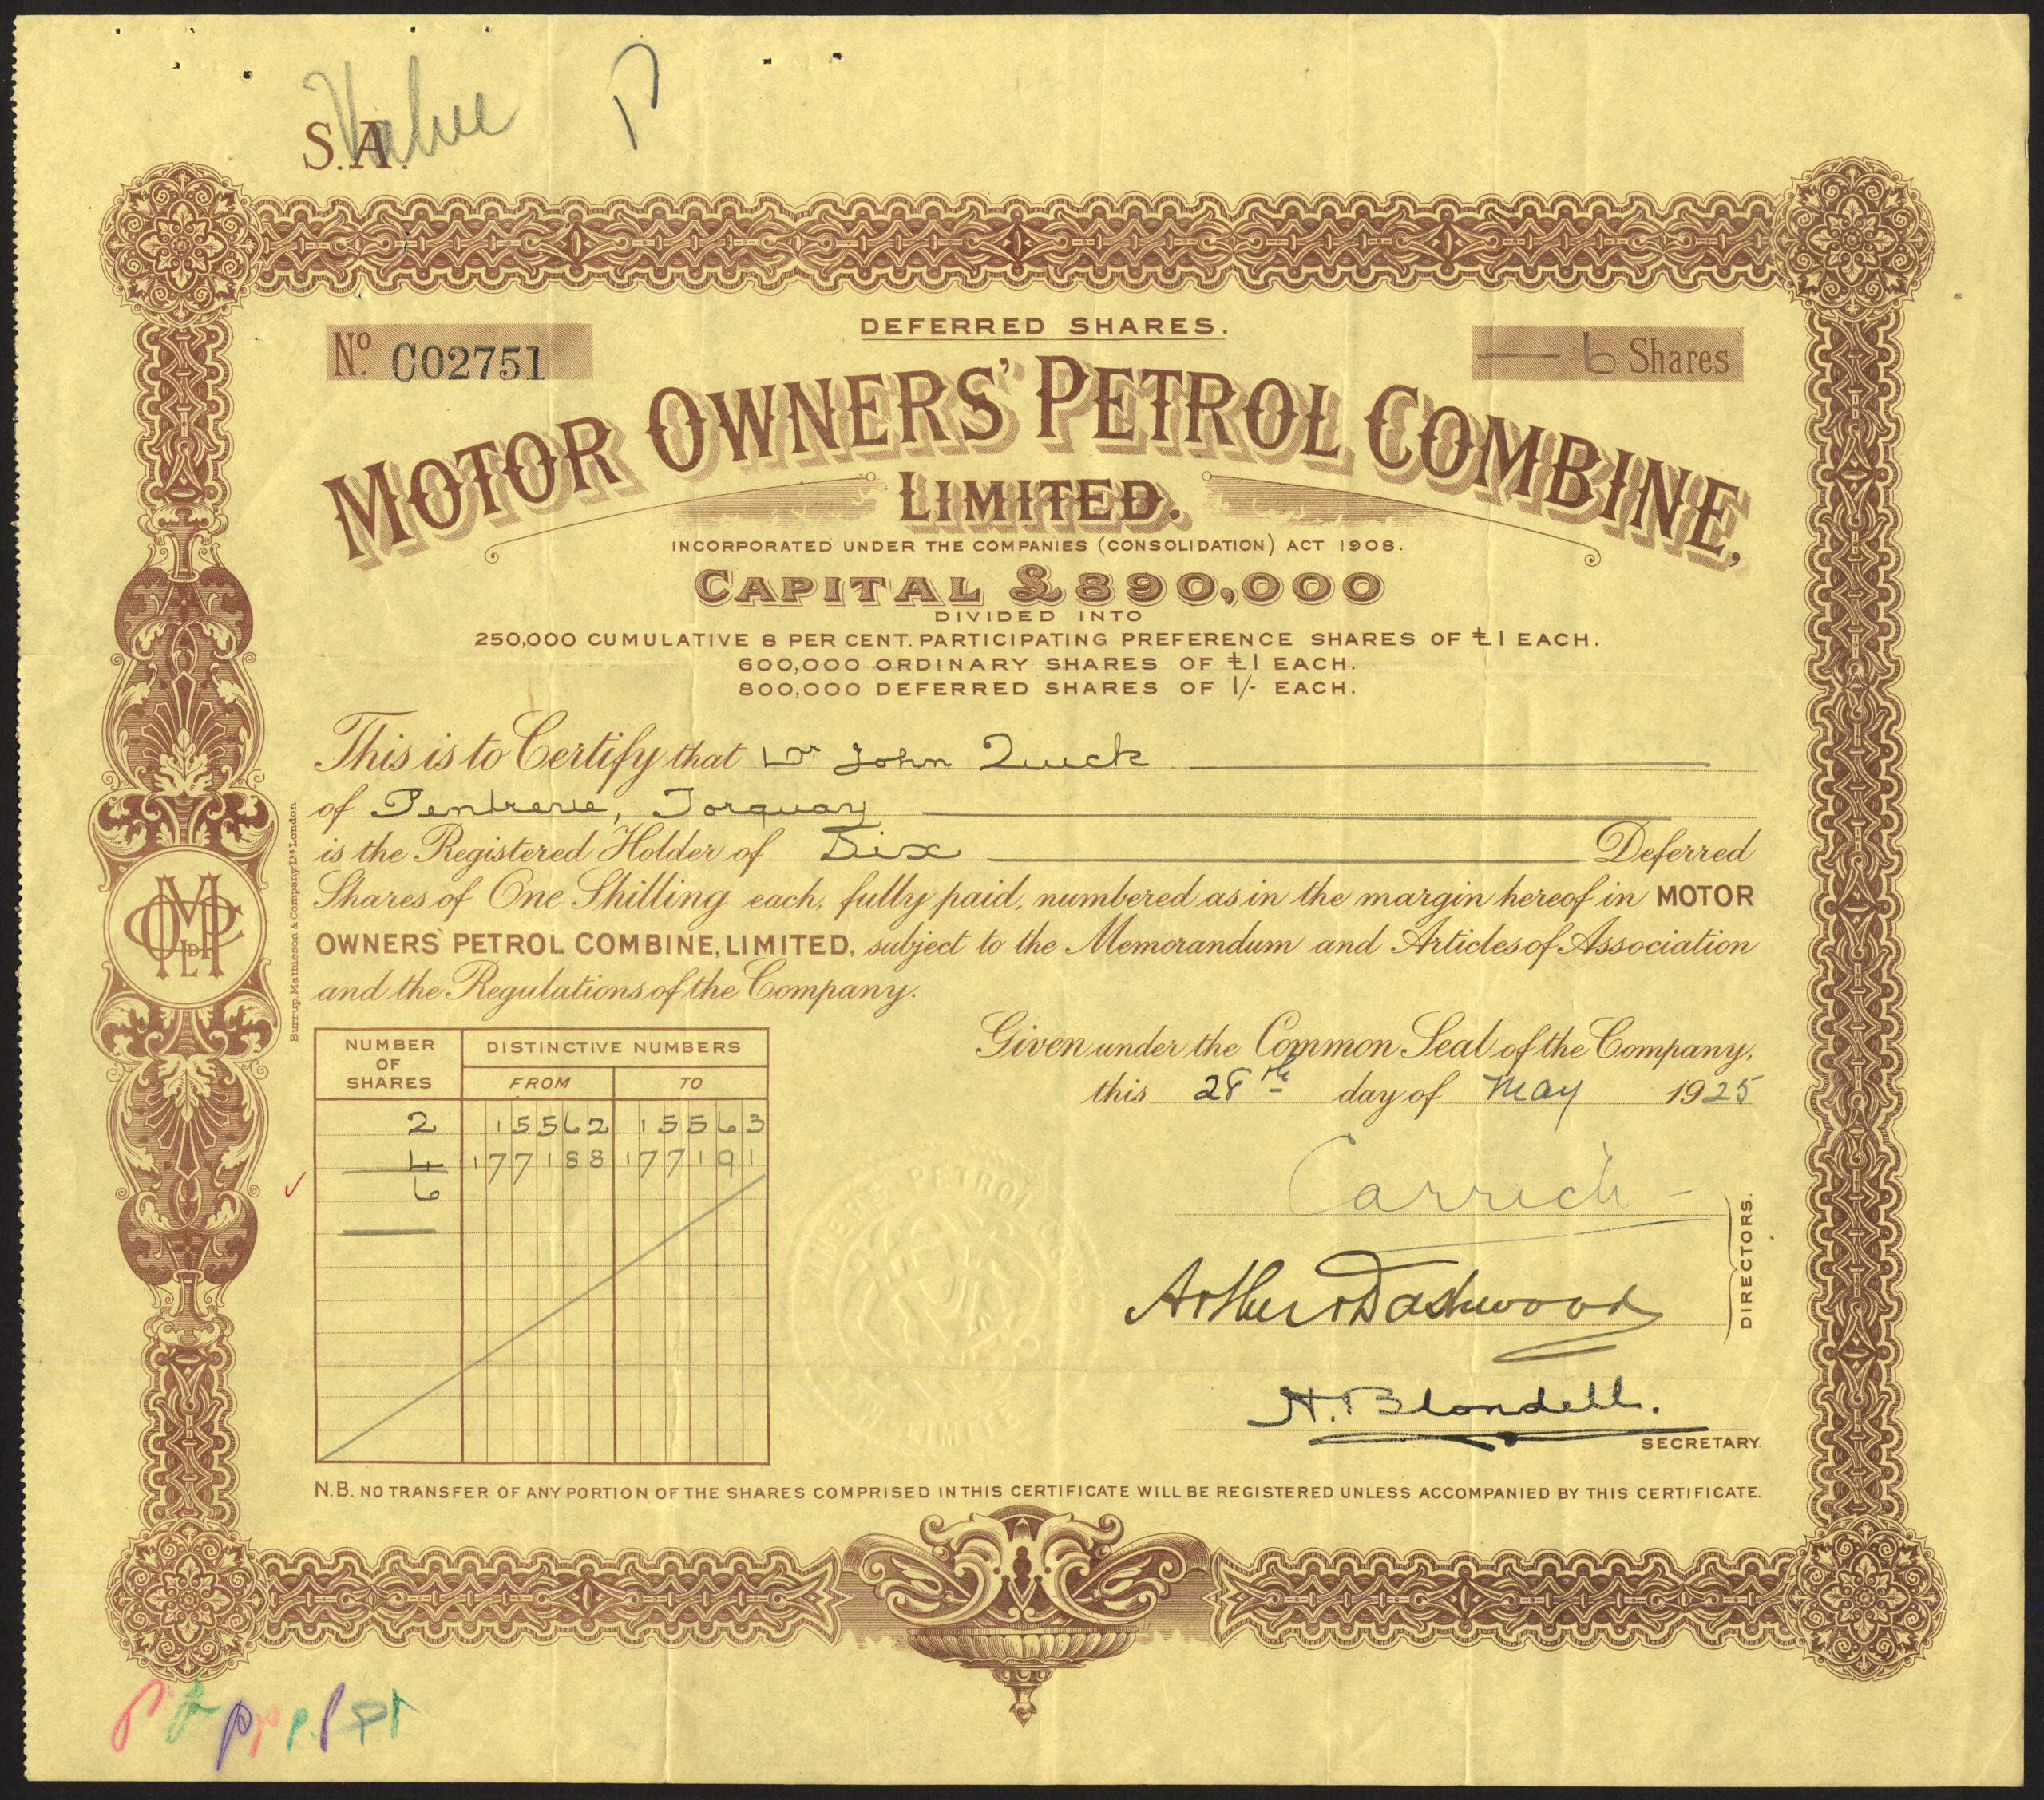 Value P
S.A.
DEFERRED SHARES.
No. C02751
6 Shares
MOTOR OWNERS' PETROL COMBINE,
LIMITED.
INCORPORATED UNDER THE COMPANIES (CONSOLIDATION) ACT 1908.
CAPITAL £890,000
DIVIDED INTO
250,000 CUMULATIVE 8 PER CENT. PARTICIPATING PREFERENCE SHARES OF £1 EACH.
600,000 ORDINARY SHARES OF £1 EACH.
800,000 DEFERRED SHARES OF 1/- EACH.
This is to Certify that Dr John Quick
of Torquay
is the Registered Holder of Six Deferred
Shares of One Shilling each, fully paid, numbered as in the margin hereof in MOTOR
OWNERS' PETROL COMBINE, LIMITED, subject to the Memorandum and Articles of Association
and the Regulations of the Company.
Burrup, Mathieson & Company, Ltd London
NUMBER OF SHARES DISTINCTIVE NUMBERS
FROM TO
2 15562 15563
4 177188 177191
6
Given under the Common Seal of the Company,
this 28th day of May 1925
Carrick
Arthur Dashwood
DIRECTORS.
H. Blondell.
SECRETARY.
OWNERS PETROL CO
LIMITE
N.B. NO TRANSFER OF ANY PORTION OF THE SHARES COMPRISED IN THIS CERTIFICATE WILL BE REGISTERED UNLESS ACCOMPANIED BY THIS CERTIFICATE.